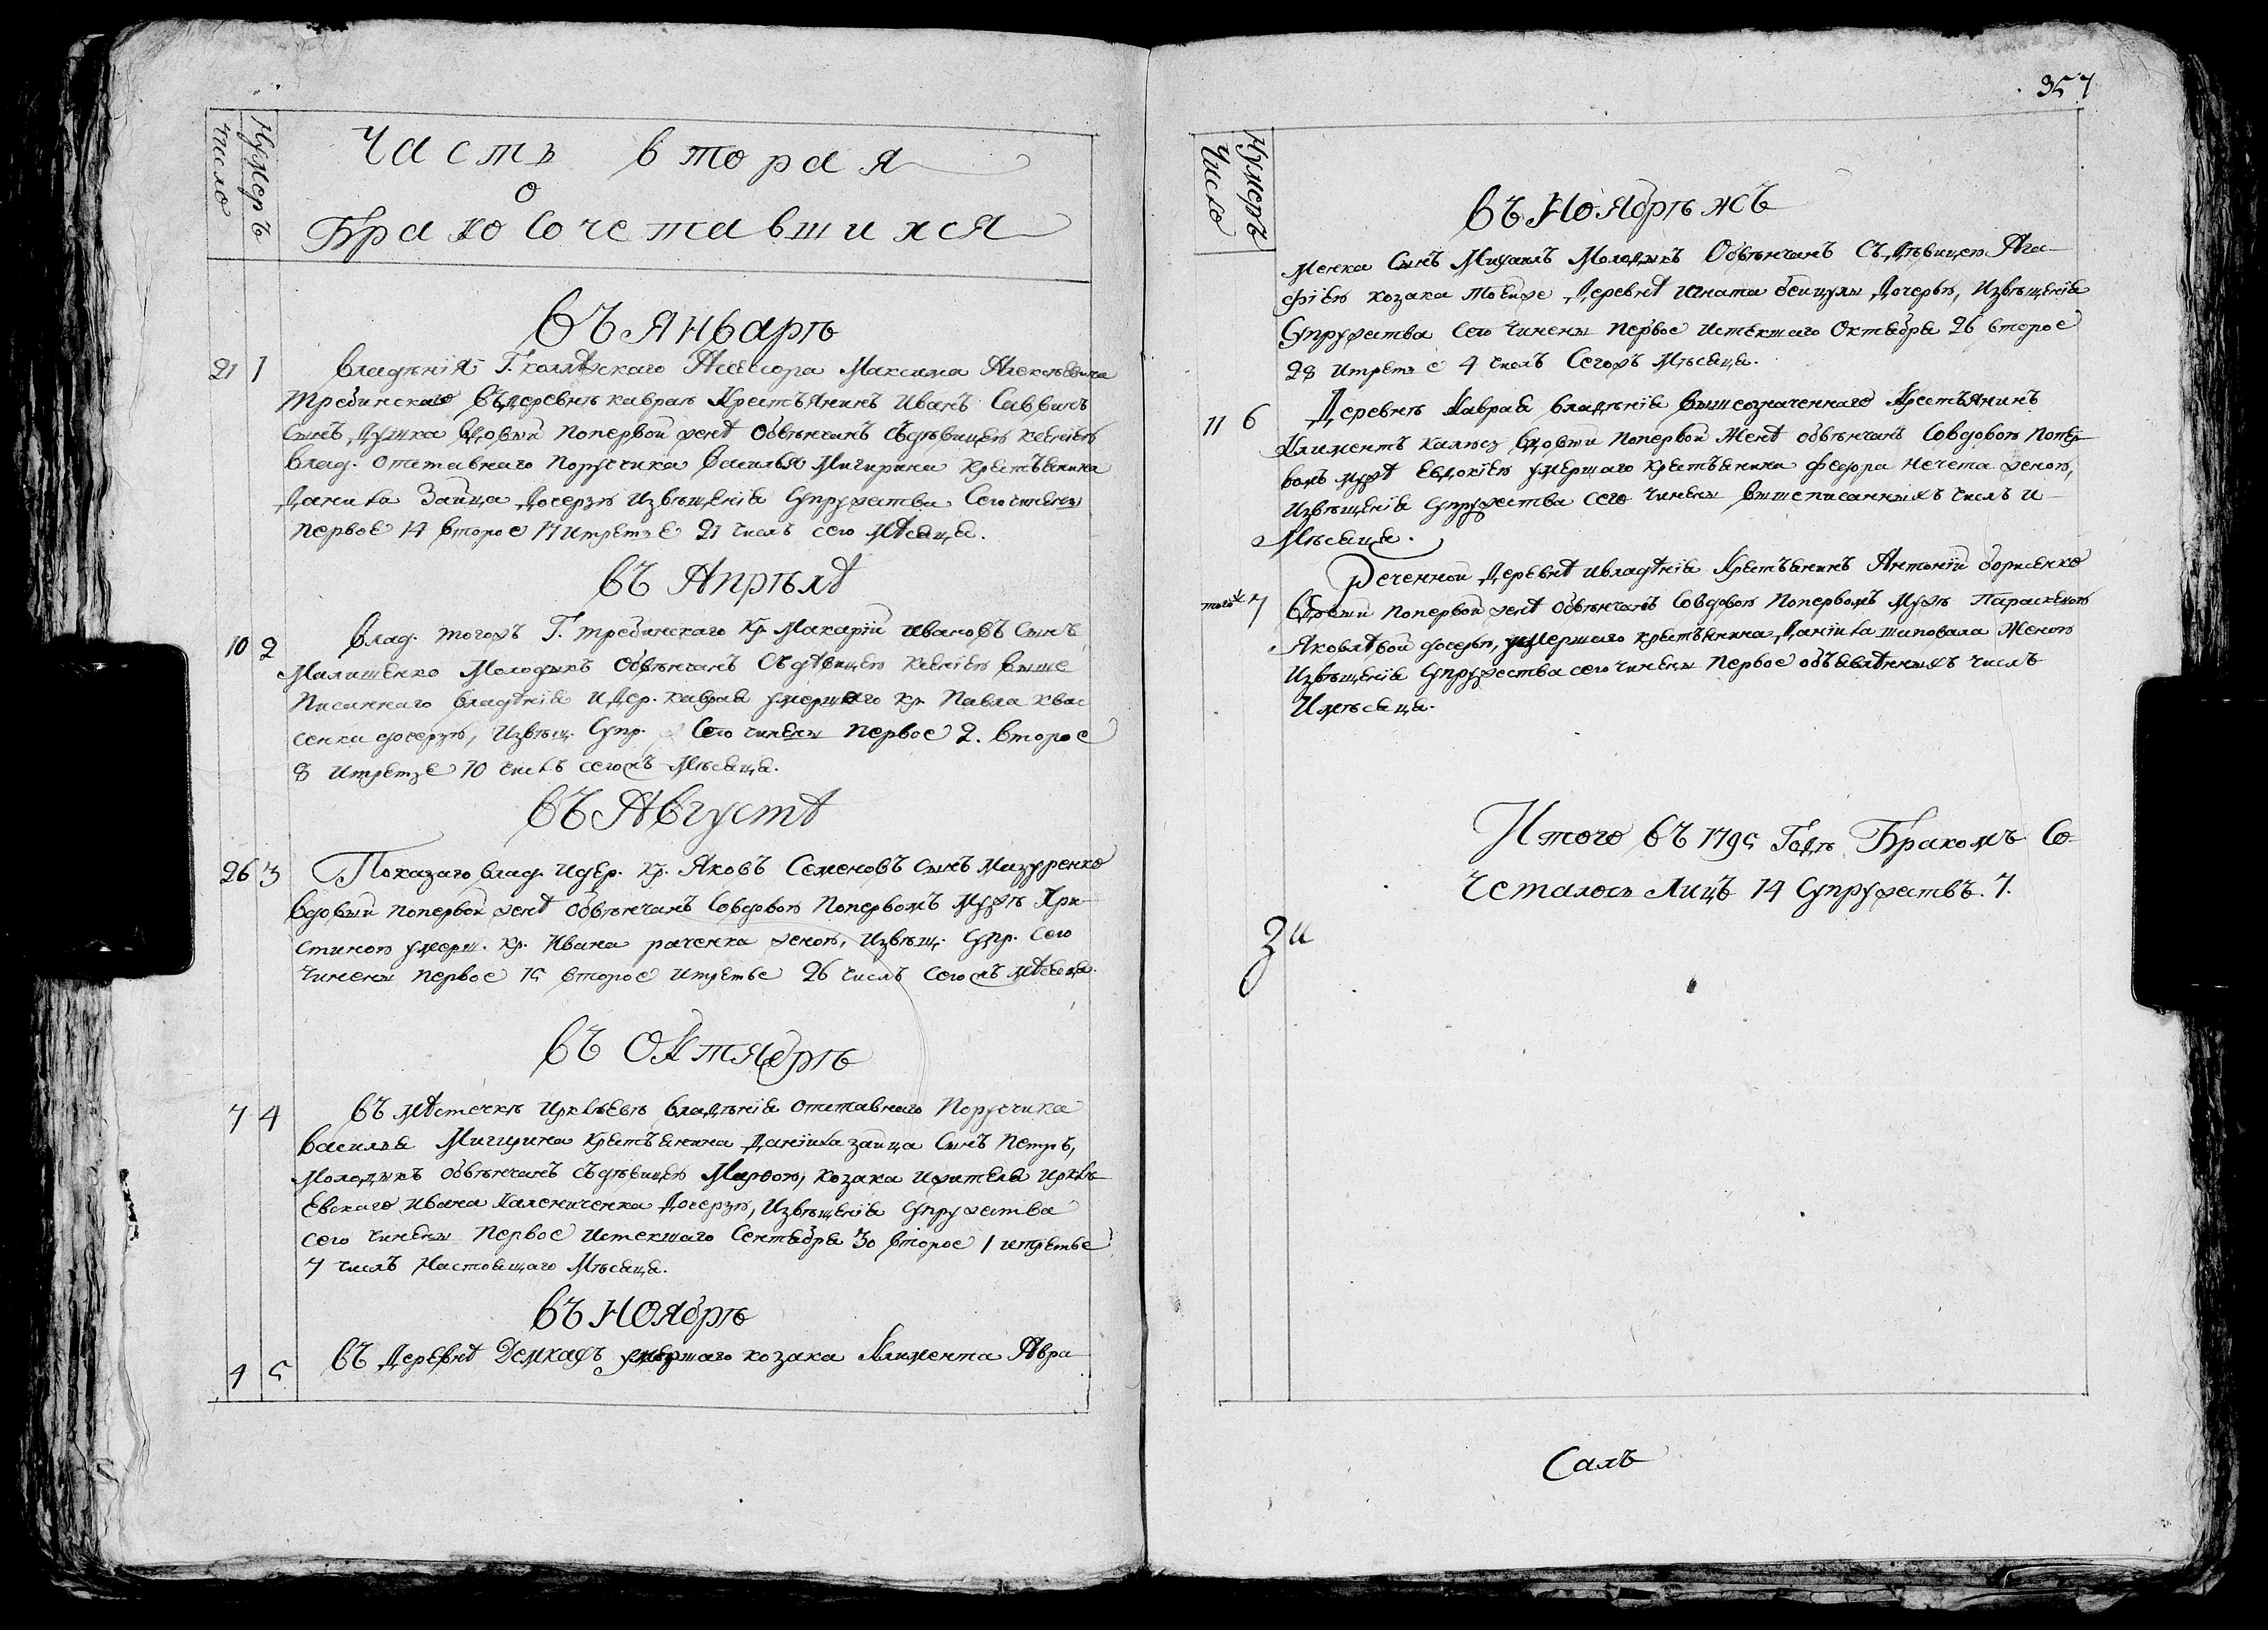 Число
Нумеръ
Часть вторая
о
Бракосочетавшихся
Въ Январѣ
21 1 Владѣнія Г. коллѣжскаго Асессора Максима Алексѣевича
Требинскаго Въдеревнѣ каврає Крестъянинъ Иванъ Саввинъ
сынъ Душка вдовый поперво́й женѣ Обвѣнчанъ съдѣвицею ксенією
Влад. отставнаго Поручика Василья Мигирина крестъянина
Данила Зайца Дочерзю Извѣщенія Супружества Сего чинены
первое 14 второе 17 итретзе 21 числъ сего мѣсяца.
Въ Апрѣлѣ
10 2 Влад. тогожъ Г. требинскаго Кр. Макарій ивановъ сынъ
Малишенко Молодикъ Обвѣнчанъ Съ дѣвицею ксенією выше
Писаннаго владѣнія и дер. каврая умершаго кр. Павла квас
сенка дочерзю, Извѣщ. Супр. Сего чинены первое 2. второе
8 итретзе 10 числъ сегожъ Мѣсяца.
Въ Августѣ
26 3 Показаго влад. идер. Кр. Яковъ Семеновъ сынъ мизуренко
Вдовый поперво́й женѣ Обвѣнчанъ Совдовою Попервомъ Мужѣ Хри-
стиною умерш. кр. Ивана раченка женою, Извѣщ. Супр. Сего
чинены первое 15 второе итретье 26 числъ Сегожъ мѣсяца.
Въ Октябрѣ
7 4 Въ мѣстечкѣ Ирклѣевѣ владѣнія отставнаго Поручика
василья Мигирина Крестъянина Данїила зайца Сынъ Петръ,
Молодикъ обвѣнчанъ съдѣвицею Марфою, козака ижителя Ирклѣ-
Евскаго Ивана Калениченка Дочерзю, Извѣщенія Супружества
сего чинены Первое Истекшаго Сентября 30 второе 1 итретье
7 числъ Настоящаго Мѣсяца.
Въ Ноябрѣ
4 5 Въ Деревнѣ Демкахъ умершаго козака Климента Авра-
357
Число
Нумеръ
Въ Ноябрѣ жъ
менка Сынъ Михаилъ Молодикъ Обвѣнчанъ Съ Дѣвицею Ага-
фїєю козака тоейже Деревнѣ Игната Дочерью, Извѣщенія
Супружества Сего Чинены первое истекшаго Октября 26 второе
28 итретье 4 числъ Сегожъ Мѣсяца.
11 6 Деревнѣ Каврая владѣнія вышеозначеннаго Крестъянинъ
Климентъ вдовый поперво́й Женѣ обвѣнчанъ Совдовою попер-
вомъ мужѣ Евдокією умершаго крестъянина федора нечета женою,
Извѣщенія Супружества сего чинены вышеписанныхъ числъ и
Мѣсяца.
тогож 7 Реченной Деревнѣ ивладѣнія Крестъянинъ Антоній борисенко
Вдовый поперво́й женѣ обвѣнчанъ Совдовою Попервомъ Мужѣ Параскевою
Яковлѣвой дочерью, умершаго крестъянина Данїила шаповала Женою
Извѣщенія Супружества сего чинены первое объявлѣнныхъ числъ
Имѣсяца.
Итого въ 1795 Годѣ Бракомъ Со-
четалось Лицъ 14 Супружествъ. 7.
Салъ